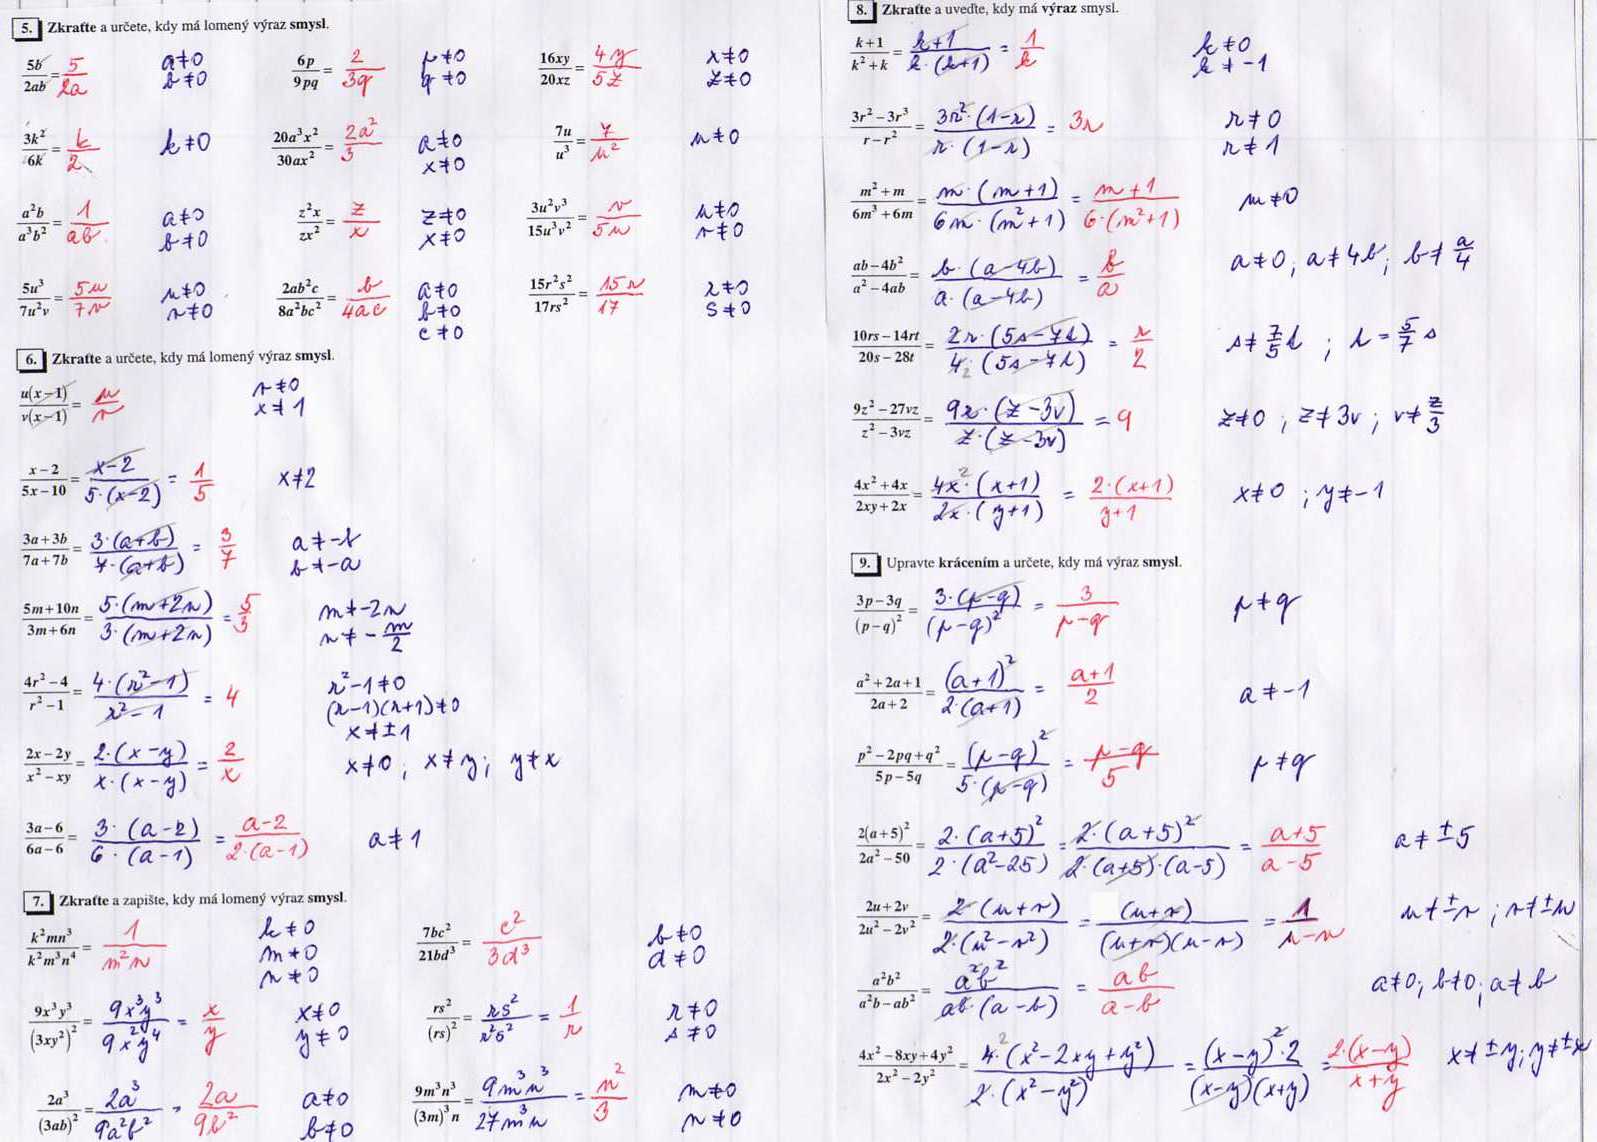 5. Zkraťte a určete, kdy má lomený výraz smysl.
5b/2ab = 5/2a a≠0 b≠0 6p/9pq = 2/3q p≠0 q≠0 16xy/20xz = 4y/5z x≠0 z≠0
3k²/6k = k/2 k≠0 20a³x²/30ax² = 2a²/3 a≠0 x≠0 7u/u³ = 7/u² u≠0
a²b/a³b² = 1/ab a≠0 b≠0 z²x/zx² = z/x z≠0 x≠0 3u²v³/15u³v² = v/5u u≠0 v≠0
5u³/7u²v = 5u/7v u≠0 v≠0 2ab²c/8a²bc² = b/4ac a≠0 b≠0 c≠0 15r²s²/17rs² = 15r/17 r≠0 s≠0
6. Zkraťte a určete, kdy má lomený výraz smysl.
u(x−1)/v(x−1) = u/v v≠0 x≠1
x−2/5x−10 = x−2/5·(x−2) = 1/5 x≠2
3a+3b/7a+7b = 3·(a+b)/7·(a+b) = 3/7 a≠−b b≠−a
5m+10n/3m+6n = 5·(m+2n)/3·(m+2n) = 5/3 m≠−2n n≠−m/2
4r²−4/r²−1 = 4·(r²−1)/r²−1 = 4 r²−1≠0 (r−1)(r+1)≠0 x≠±1
2x−2y/x²−xy = 2·(x−y)/x·(x−y) = 2/x x≠0; x≠y; y≠x
3a−6/6a−6 = 3·(a−2)/6·(a−1) = a−2/2·(a−1) a≠1
7. Zkraťte a zapište, kdy má lomený výraz smysl.
k²mn³/k²m³n⁴ = 1/m²n k≠0 m≠0 n≠0 7bc²/21bd³ = c²/3d³ b≠0 d≠0
9x³y³/(3xy²)² = 9x³y³/9x²y⁴ = x/y x≠0 y≠0 rs²/(rs)² = rs²/r²s² = 1/r r≠0 s≠0
2a³/(3ab)² = 2a³/9a²b² = 2a/9b² a≠0 b≠0 9m³n³/(3m)³n = 9m³n³/27m³n = n²/3 m≠0 n≠0
8. Zkraťte a uveďte, kdy má výraz smysl.
k+1/k²+k = k+1/k·(k+1) = 1/k k≠0 k≠−1
3r²−3r³/r−r² = 3r²·(1−r)/r·(1−r) = 3r r≠0 r≠1
m²+m/6m³+6m = m·(m+1)/6m·(m²+1) = m+1/6·(m²+1) m≠0
ab−4b²/a²−4ab = b·(a−4b)/a·(a−4b) = b/a a≠0; a≠4b; b≠a/4
10rs−14rt/20s−28t = 2r·(5s−7t)/4 2·(5s−7t) = r/2 s≠7/5t ; t=5/7s
9z²−27vz/z²−3vz = 9z·(z−3v)/z·(z−3v) = 9 z≠0 ; z≠3v ; v≠z/3
4x²+4x/2xy+2x = 4x 2·(x+1)/2x·(y+1) = 2·(x+1)/y+1 x≠0 ; y≠−1
9. Upravte krácením a určete, kdy má výraz smysl.
3p−3q/(p−q)² = 3·(p−q)/(p−q)² = 3/p−q p≠q
a²+2a+1/2a+2 = (a+1)²/2·(a+1) = a+1/2 a≠−1
p²−2pq+q²/5p−5q = (p−q)²/5·(p−q) = p−q/5 p≠q
2(a+5)²/2a²−50 = 2·(a+5)²/2·(a²−25) = 2·(a+5)²/2·(a+5)·(a−5) = a+5/a−5 a≠±5
2u+2v/2u²−2v² = 2·(u+v)/2·(u²−v²) = (u+v)/(u+v)(u−v) = 1/u−v u≠±v ; v≠±u
a²b²/a²b−ab² = a²b²/ab·(a−b) = ab/a−b a≠0; b≠0; a≠b
4x²−8xy+4y²/2x²−2y² = 4 2·(x²−2xy+y²)/2·(x²−y²) = (x−y)²·2/(x−y)(x+y) = 2·(x−y)/x+y x≠±y; y≠±x